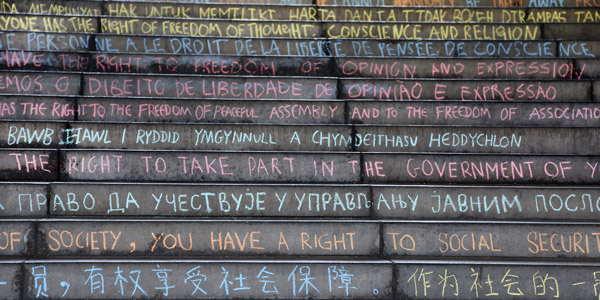 MEMPUNYAI HAK UNTUK MEMILIKI HARTA DAN IA TIDAK BOLEH DIRAMPAS TAN
YONE HAS THE RIGHT OF FREEDOM OF THOUGHT, CONSCIENCE AND RELIGION
E PERSONNE A LE DROIT DE LA LIBERTE DE PENSÉE, DE CONSCIENCE
HAVE THE RIGHT TO FREEDOM OF OPINION AND EXPRESSION
EMOS O DIREITO DE LIBERDADE DE OPINIÃO E EXPRESSÃO
HAS THE RIGHT TO THE FREEDOM OF PEACEFUL ASSEMBLY AND TO THE FREEDOM OF ASSOCIATIO
BAWB HAWL I RYDDID YMGYNNULL A CHYMDEITHASU HEDDYCHLON
THE RIGHT TO TAKE PART IN HE GOVERNMENT OF Y
ПРАВО ДА УЧЕСТВУЈЕ У УПРАВЉАЊУ ЈАВНИМ ПОСЛО
OF SOCIETY, YOU HAVE A RIGHT TO SOCIAL SECURIT
一员,有权享受社会保障。作为社会的一员